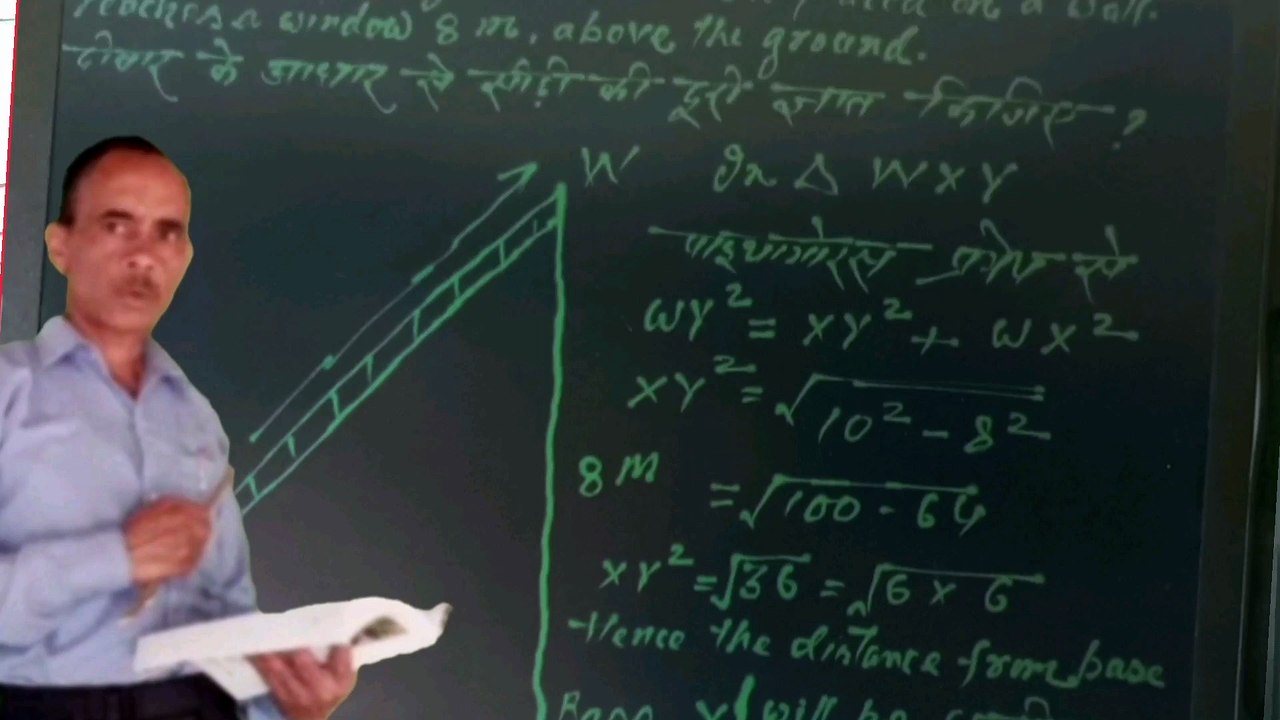 a wall.
reaches a window 8 m. above the ground.
दीवार के आधार से सीढ़ी की दूरी ज्ञात किजिए ?
W In Δ W X Y
पाइथागोरस प्रमेय से
WY² = XY² + WX²
XY² = √10² - 8²
8 M
= √100 - 64
XY² = √36 = √6 × 6
Hence the distance from base
will be